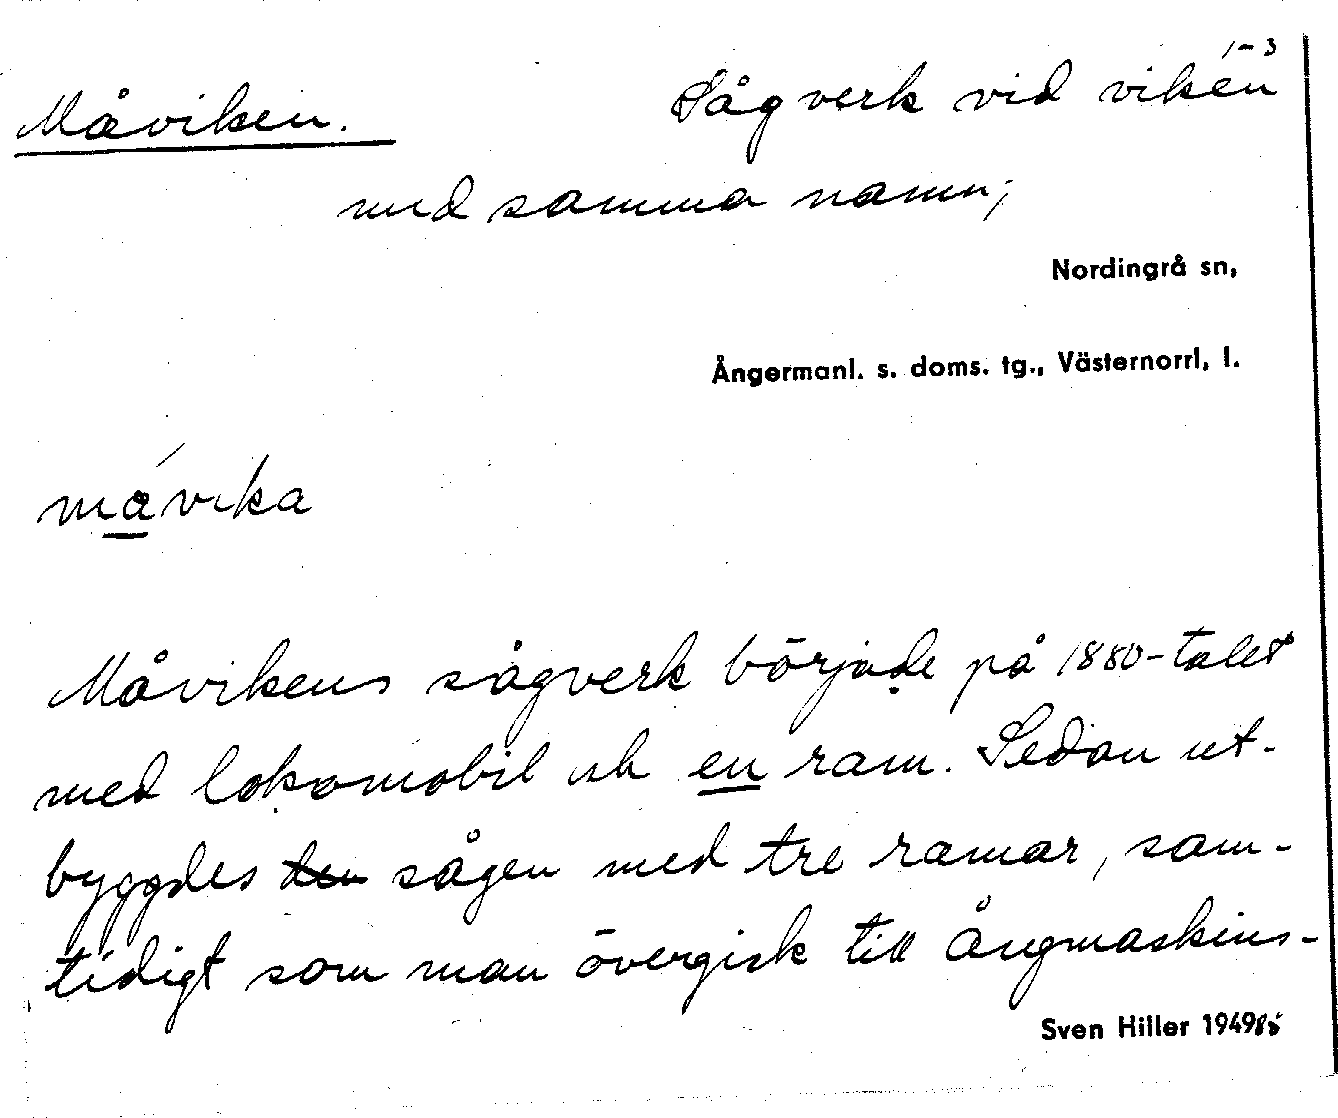 1-3
Måviken. Sågverk vid viken
med samma namn;
Nordingrå sn,
Ångermanl. s. doms. tg., Västernorrl. l.
måvika
Måvikens sågverk började på 1880-talet
med lokomobil och en ram. Sedan ut-
byggdes den sågen med tre ramar, sam-
tidigt som man övergick till ångmaskins-
Sven Hiller 1949